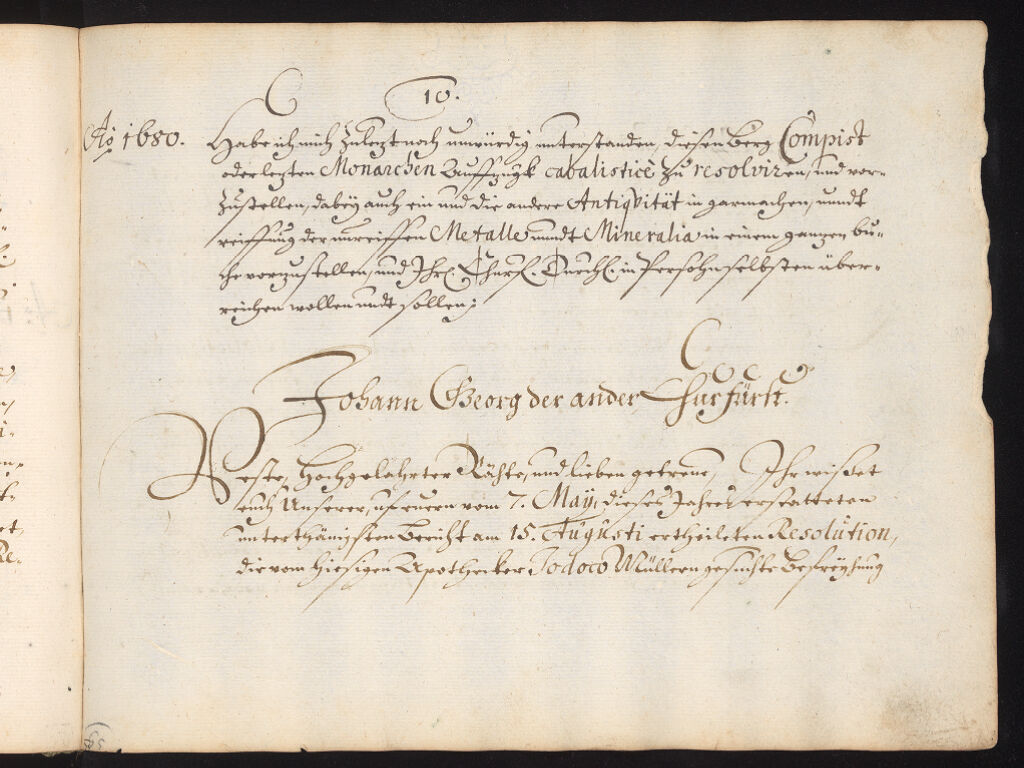 10.
Ao 1680. Habe ich mich zuletzt noch unwürdig unterstanden, diesen Berg Compist
oder lezten Monarchen cabalisticè zu resolviren, und vor-
zustellen, dabey auch ein und die andere Antiqvität in garmachen, unndt
reiffung der unreiffen Metalle unndt Mineralia in einem ganzen bu-
che vorzustellen, und Ihr. Churf. Durchl. in Persohn selbsten über-
reichen wollen undt sollen;
Johann Georg der ander Churfürst.
Veste, Hochgelahrter Räthe, und lieben getreue, Ihr wißet
euch Unserer, uf euern vom 7. May, dieses Jahres erstatteten
unterthänigsten Bericht am 15. Augusti ertheileten Resolution,
die vom hiesigen Apothecker Jodoco Müllern gesuchte Befreyhung